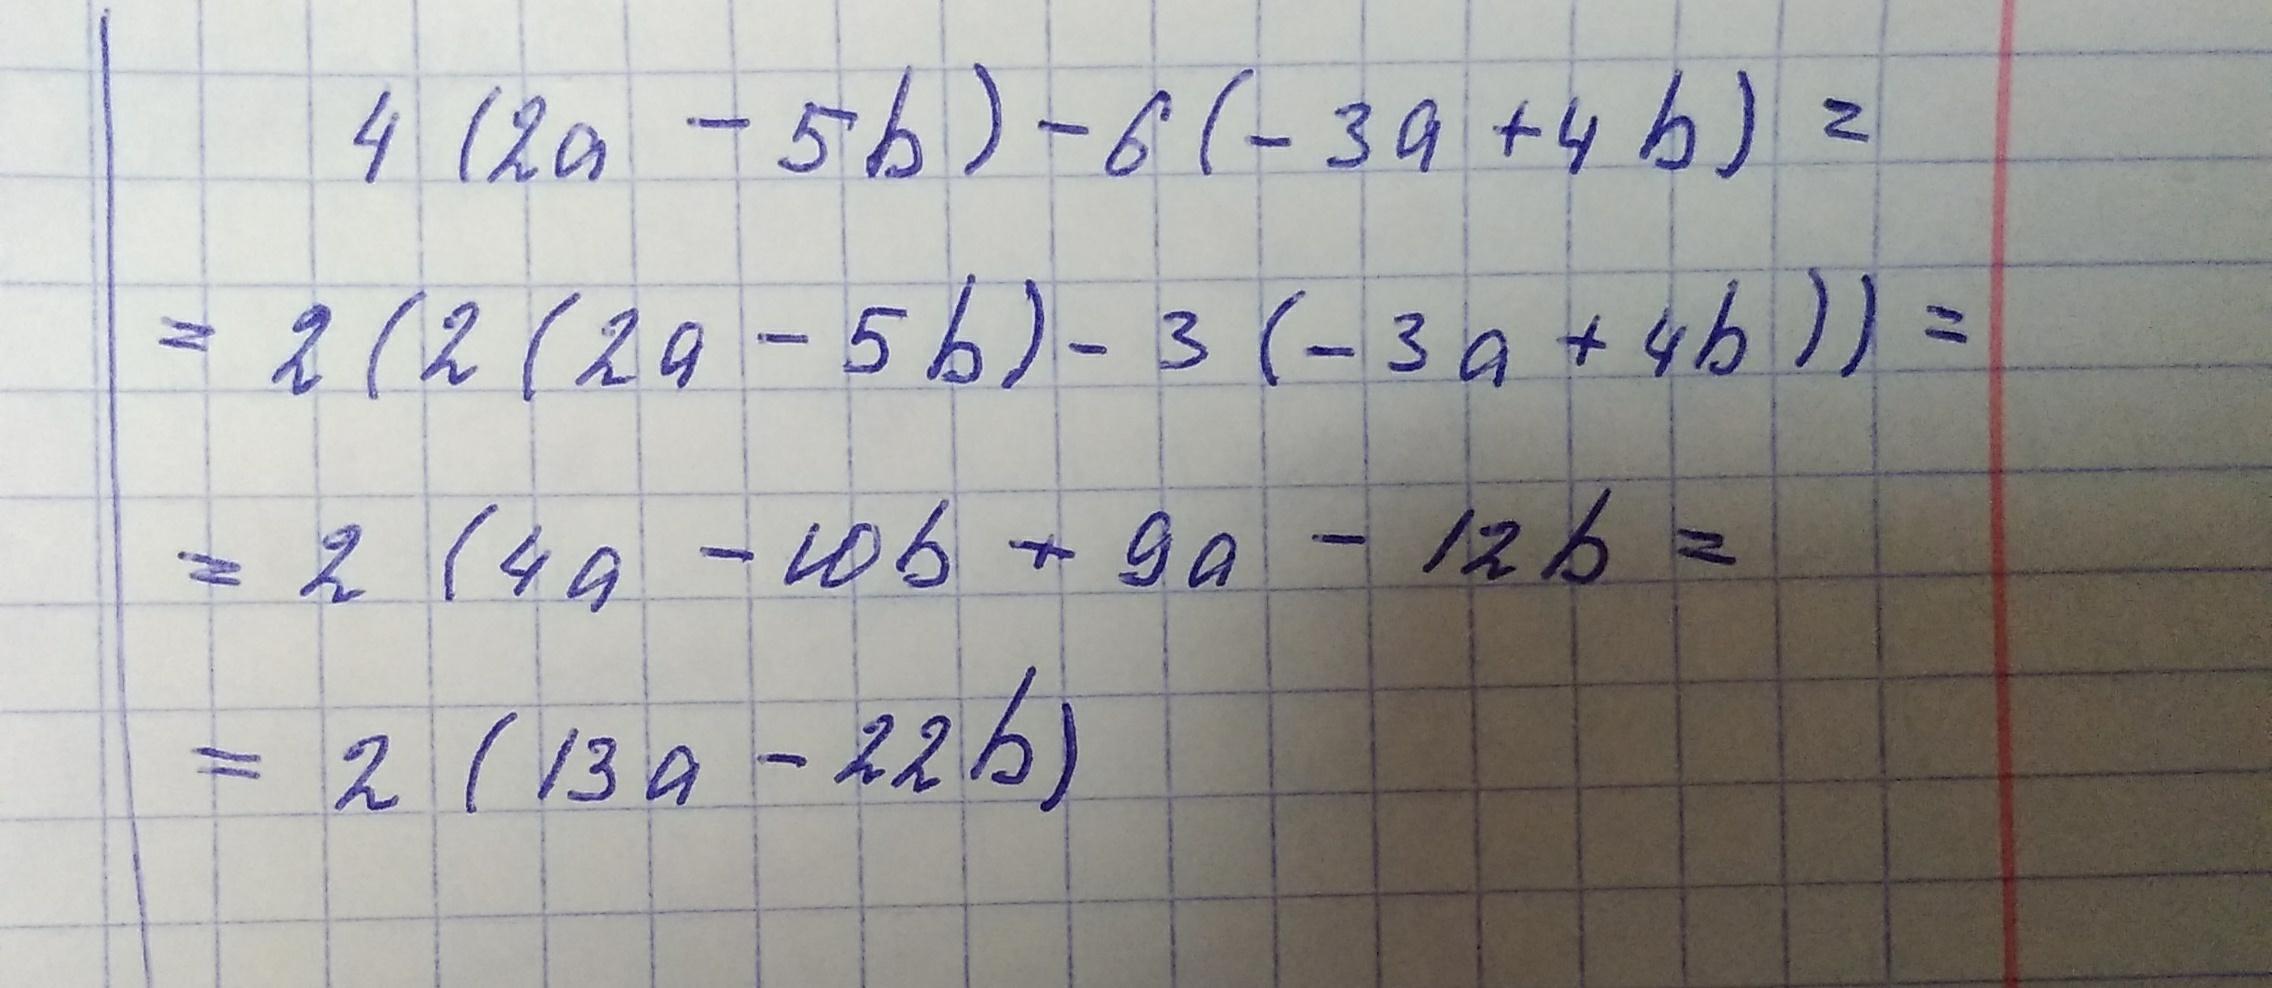 4(2a - 5b) - 6(-3a + 4b) =
= 2(2(2a - 5b) - 3(-3a + 4b)) =
= 2(4a - 10b + 9a - 12b =
= 2(13a - 22b)